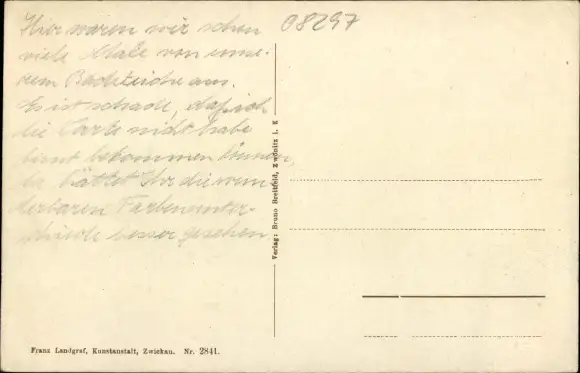 Hier waren wir schon
viele Male von unse-
rem Badeteiche aus.
Es ist schade, daß ich
die Karte nicht habe
bunt bekommen können,
da hättet Ihr die wun-
derbaren Farbenunter-
schiede besser gesehen
08297
Verlag: Bruno Breitfeld, Zwönitz i. E
Franz Landgraf, Kunstanstalt, Zwickau. Nr. 2841.